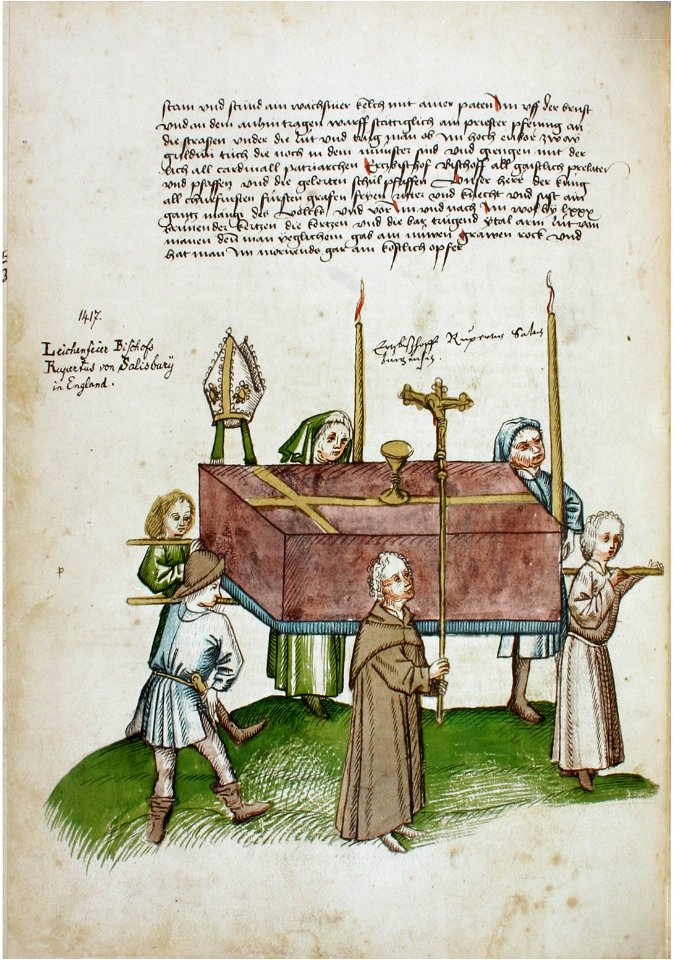 stain und stund ain wachsiner kelch mit ainer paten Im uff der brust
und an dem anhin tragen warff stättiglich ain priester pfennig an
die strassen under die lüt und trug man ob Im hoch enbor zway
guldin tüch die noch in dem münster sind und giengen mit der
lich all cardinäl patriarchen Ertzbischof Bischoff all gaistlich prelaten
und pfaffen und die gelerten schůl pfaffen Unser herr der küng
all churfursten fürsten grafen fryen ritter und knecht und sust ain
gantz mäng des volcks und vor Im und nach Im wol by lxxx
brinender kertzen die kertzen und die bar trugend ytal arm lüt von
manen den man yeglichem gab ain nüwen grawen rock und
hat man Im morvends gar ain köstlich opfer
1417.
Leichenfeüer Bischofs
Rupertus von Salisbury
in England.
Ertzbischoff Rupertus Salus
burgensis.